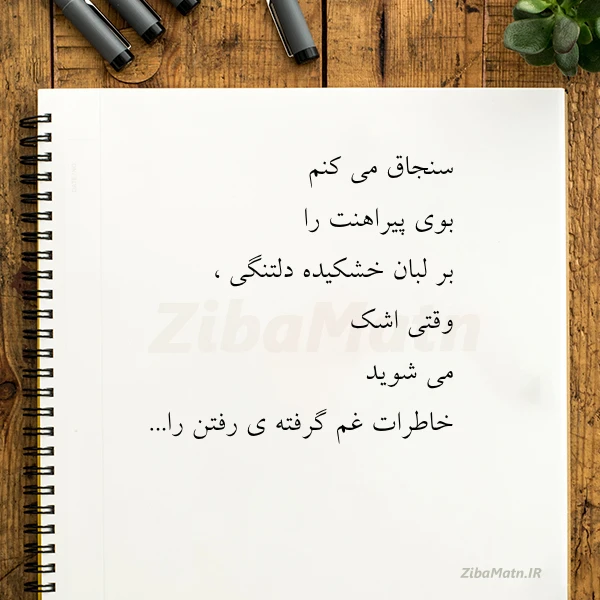 سنجاق می کنم
بوی پیراهنت را
بر لبان خشکیده دلتنگی ،
وقتی اشک
می شوید
خاطرات غم گرفته ی رفتن را...
ZibaMatn
ZibaMatn.IR